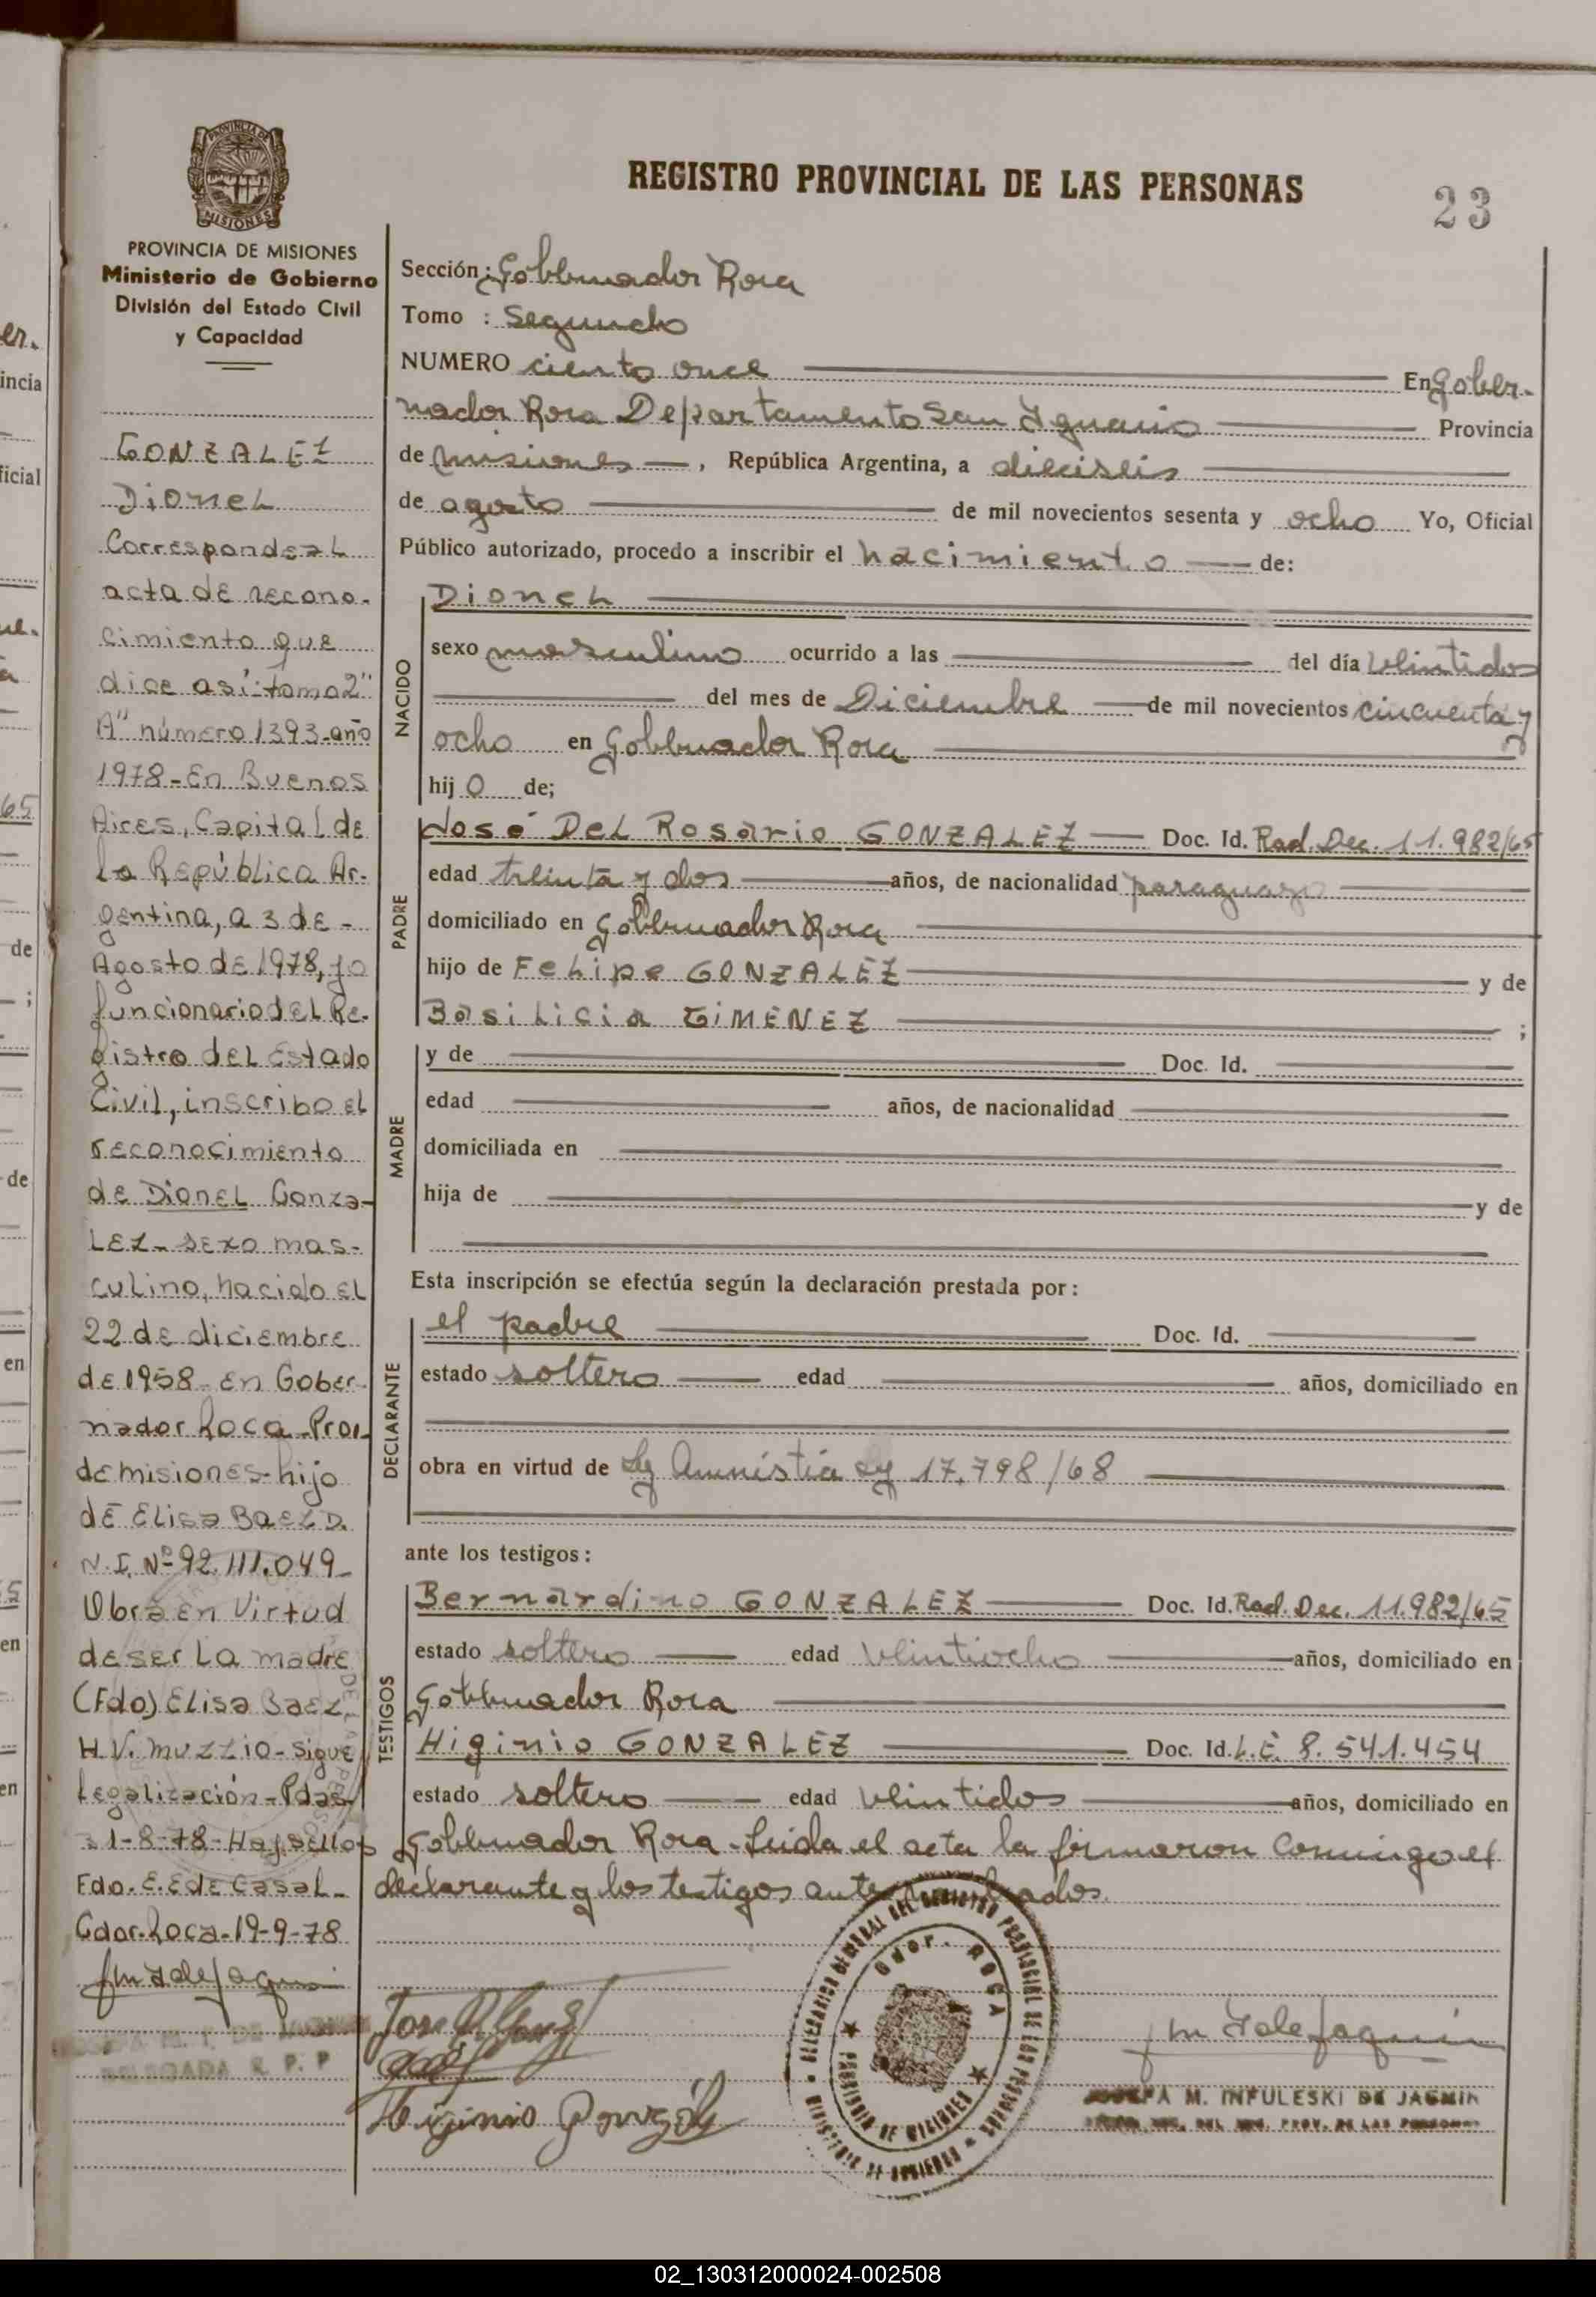 REGISTRO PROVINCIAL DE LAS PERSONAS
23
PROVINCIA DE
MISIONES
PROVINCIA DE MISIONES
Ministerio de Gobierno
División del Estado Civil
y Capacidad
GONZALEZ
Dionel
Corresponde al
acta de recono-
cimiento que
dice así: tomo 2"
A" número 1393-año
1978-En Buenos
Aires, Capital de
la República Ar-
gentina, a 3 de -
Agosto de 1978, yo
funcionario del Re-
gistro del Estado
Civil, inscribo el
reconocimiento
de Dionel Gonza-
lez- sexo mas-
culino, nacido el
22 de diciembre
de 1958- en Gober-
nador Roca-Prov.
de misiones-hijo
de Elisa Baez D.
N.I. Nº 92.111.049-
Obra en Virtud
de ser la madre
(Fdo) Elisa Baez,
H.V. Muzzio- Sigue
Legalización-
1-8-78-Hay sellos
Fdo. E.E de Casal-
Gdor. Roca-19-9-78
DELEGADA R. P. P
Sección: Gobernador Roca
Tomo : Segundo
NUMERO ciento once En Gober-
nador Roca Departamento San Ignacio Provincia
de misiones, República Argentina, a dieciseis
de agosto de mil novecientos sesenta y ocho Yo, Oficial
Público autorizado, procedo a inscribir el nacimiento de:
NACIDO
Dionel
sexo masculino ocurrido a las del día veintidos
del mes de Diciembre de mil novecientos cincuenta y
ocho en Gobernador Roca
hijo de;
PADRE
José Del Rosario GONZALEZ Doc. Id. Rad. Dec. 11.982/65
edad treinta y dos años, de nacionalidad paraguayo
domiciliado en Gobernador Roca
hijo de Felipe GONZALEZ y de
Basilicia GIMENEZ ;
MADRE
y de Doc. Id.
edad años, de nacionalidad
domiciliada en
hija de y de
Esta inscripción se efectúa según la declaración prestada por:
DECLARANTE
el padre Doc. Id.
estado soltero edad años, domiciliado en
obra en virtud de Ley Amnistia Ley 17.798/68
ante los testigos:
TESTIGOS
Bernardino GONZALEZ Doc. Id. Rad. Dec. 11.982/65
estado soltero edad veintiocho años, domiciliado en
Gobernador Roca
Higinio GONZALEZ Doc. Id. L.E. 8.541.454
estado soltero edad veintidos años, domiciliado en
Gobernador Roca - Leida el acta la firmaron conmigo el
declarante y los testigos ante
Higinio Gonzalez
Gdor. ROCA
PROVINCIA DE MISIONES
JOSEFA M. INFULESKI DE JAGMIN
02_130312000024-002508